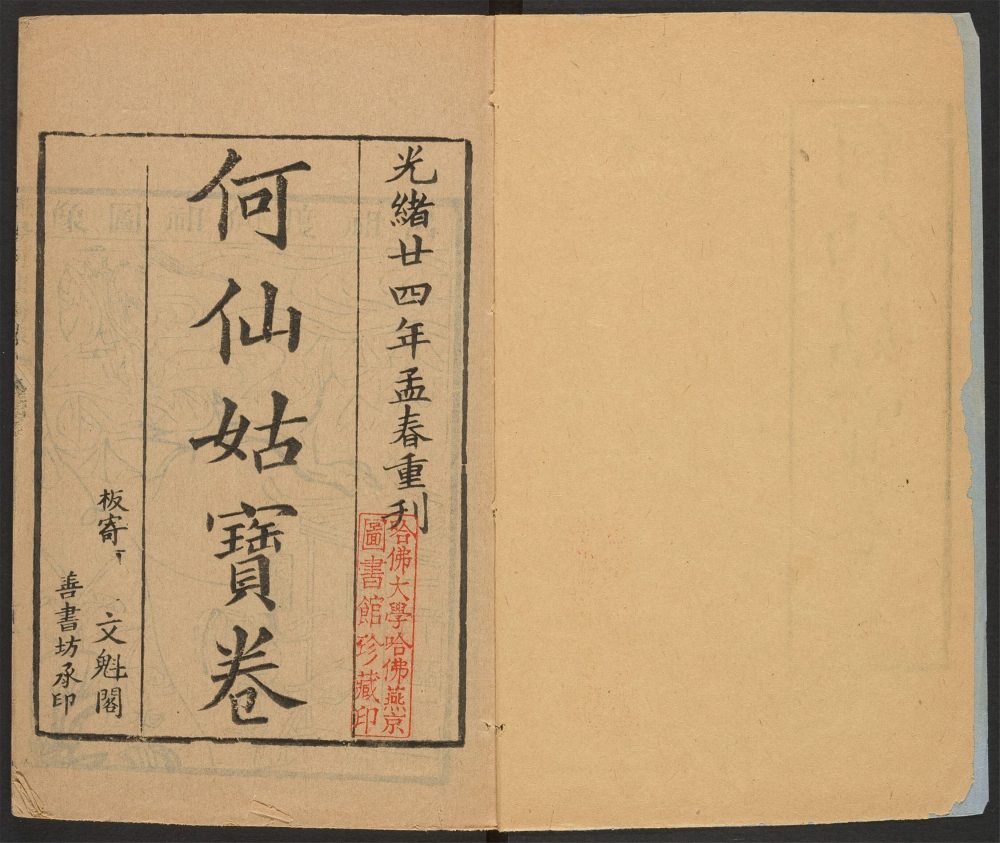 光緒廿四年孟春重刋
何仙姑寶卷
板寄 文魁閣
善書坊承印
哈佛大學哈佛燕京
圖書館珍藏印